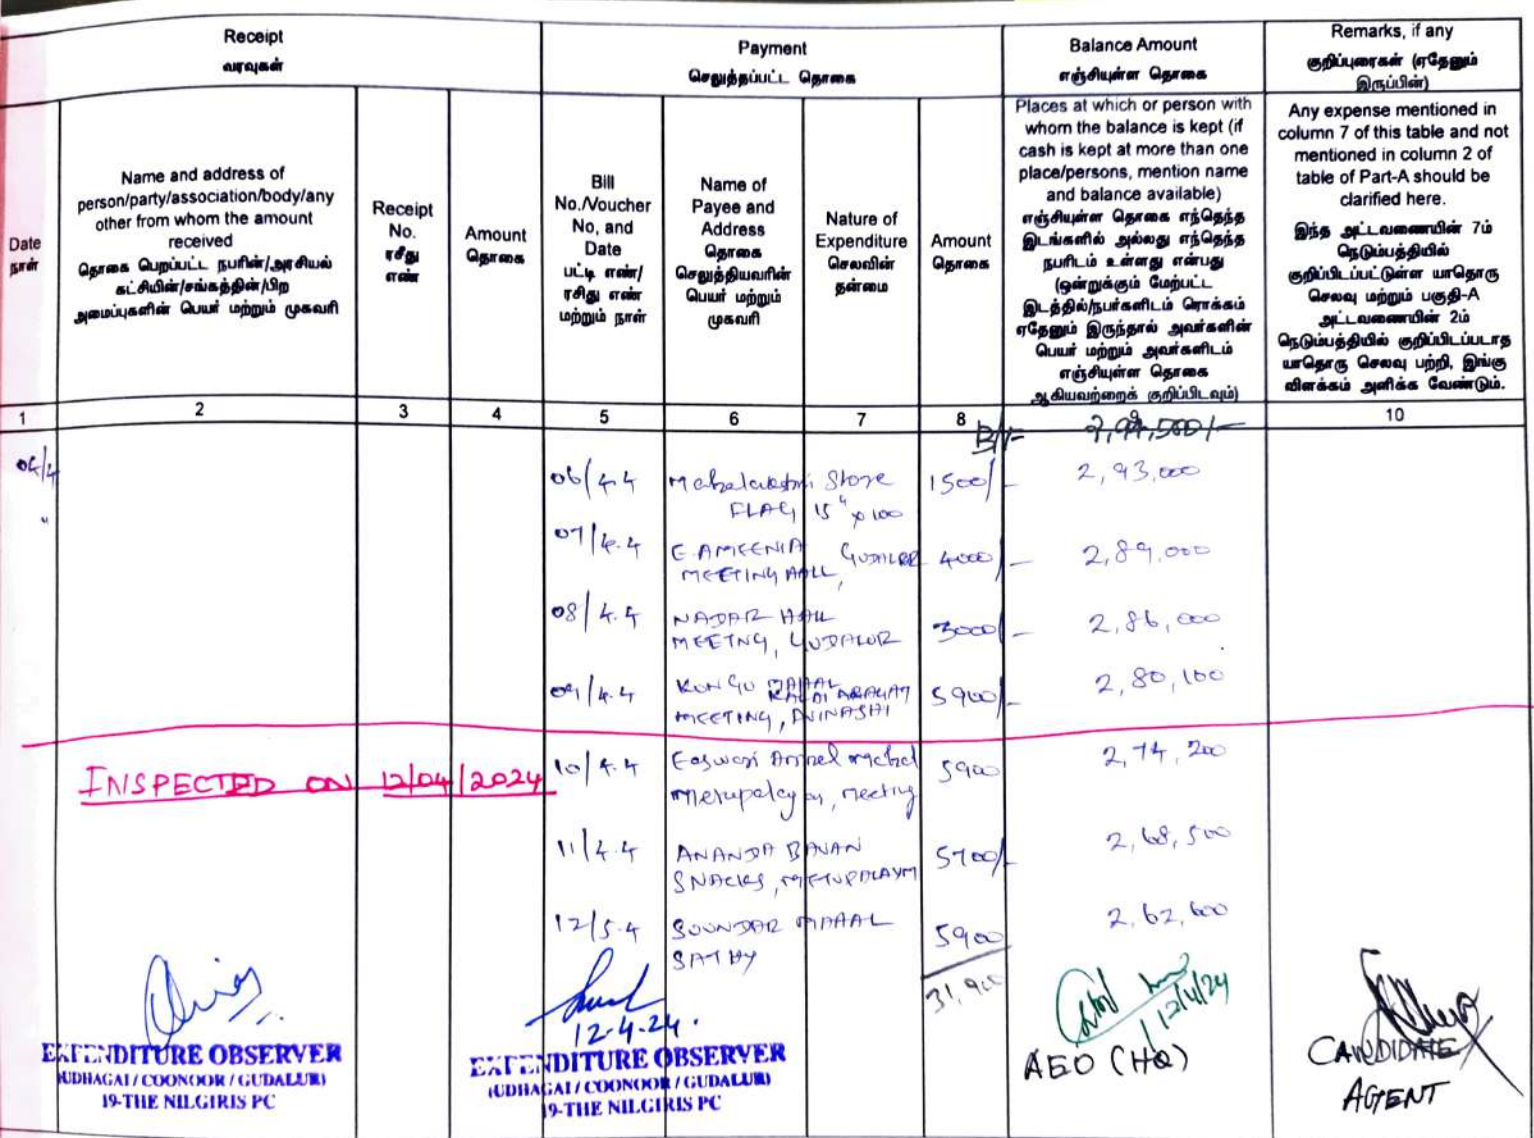 Receipt
வரவுகள்
Payment
செலுத்தப்பட்ட தொகை
Balance Amount
எஞ்சியுள்ள தொகை
Remarks, if any
குறிப்புரைகள் (ஏதேனும்
இருப்பின்)
Date
நாள்
Name and address of
person/party/association/body/any
other from whom the amount
received
தொகை பெறப்பட்ட நபரின்/அரசியல்
கட்சியின்/சங்கத்தின்/பிற
அமைப்புகளின் பெயர் மற்றும் முகவரி
Receipt
No.
ரசீது
எண்
Amount
தொகை
Bill
No./Voucher
No, and
Date
பட்டி எண்/
ரசிது எண்
மற்றும் நாள்
Name of
Payee and
Address
தொகை
செலுத்தியவரின்
பெயர் மற்றும்
முகவரி
Nature of
Expenditure
செலவின்
தன்மை
Amount
தொகை
Places at which or person with
whom the balance is kept (if
cash is kept at more than one
place/persons, mention name
and balance available)
எஞ்சியுள்ள தொகை எந்தெந்த
இடங்களில் அல்லது எந்தெந்த
நபரிடம் உள்ளது என்பது
(ஒன்றுக்கும் மேற்பட்ட
இடத்தில்/நபர்களிடம் ரொக்கம்
ஏதேனும் இருந்தால் அவர்களின்
பெயர் மற்றும் அவர்களிடம்
எஞ்சியுள்ள தொகை
ஆகியவற்றைக் குறிப்பிடவும்)
Any expense mentioned in
column 7 of this table and not
mentioned in column 2 of
table of Part-A should be
clarified here.
இந்த அட்டவணையின் 7ம்
நெடும்பத்தியில்
குறிப்பிடப்பட்டுள்ள யாதொரு
செலவு மற்றும் பகுதி-A
அட்டவணையின் 2ம்
நெடும்பத்தியில் குறிப்பிடப்படாத
யாதொரு செலவு பற்றி, இங்கு
விளக்கம் அளிக்க வேண்டும்.
1 2 3 4 5 6 7 8 9 10
06/4.4 Mahalakshmi Store 1500/- 2,93,000
FLAG 15" x 100
" 07/4.4 E. AMEENIA GUDALUR 4000/- 2,89,000
MEETING HALL,
08/4.4 NADAR HALL 3000/- 2,86,000
MEETNG, GUDALUR
09/4.4 KONGU MAHAL 5900/- 2,80,100
MEETING, AVINASHI
INSPECTED ON 12/04/2024
10/4.4 Easwari 5900 2,74,200
meeting
11/4.4 ANANDA BAVAN 5700/- 2,68,500
SNACKS, METUPALAYM
12/5.4 SOUNDAR MAHAL 5900 2,62,600
SATHY
31,900
12-4-24.
12/4/24
EXPENDITURE OBSERVER
(UDHAGAI / COONOOR / GUDALUR)
19-THE NILGIRIS PC
EXPENDITURE OBSERVER
(UDHAGAI / COONOOR / GUDALUR)
19-THE NILGIRIS PC
AEO (HQ)
CANDIDATE
AGENT